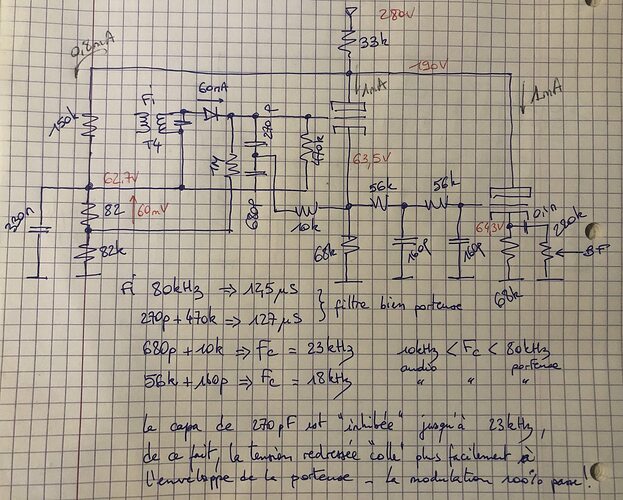 280V
33k
0.8mA
190V
1mA
1mA
60nA
Fi
T4
150k
270P
1M
470k
680p
62.7V
63,5V
56k
56k
82
60mV
330n
10k
82k
68k
160p
160p
64,3V
0,1n
220k
BF
68k
Fi 80kHz => 12,5 µS
270p + 470k => 127 µS
} filtre bien porteuse
680p + 10k => Fc = 23kHz
10kHz < Fc < 80kHz
audio " porteuse
56k + 160p => Fc = 18kHz
" " "
la capa de 270pF est "inhibée" jusqu'à 23kHz,
de ce fait, la tension redressée "colle" plus facilement à
l'enveloppe de la porteuse - la modulation 100% passe!